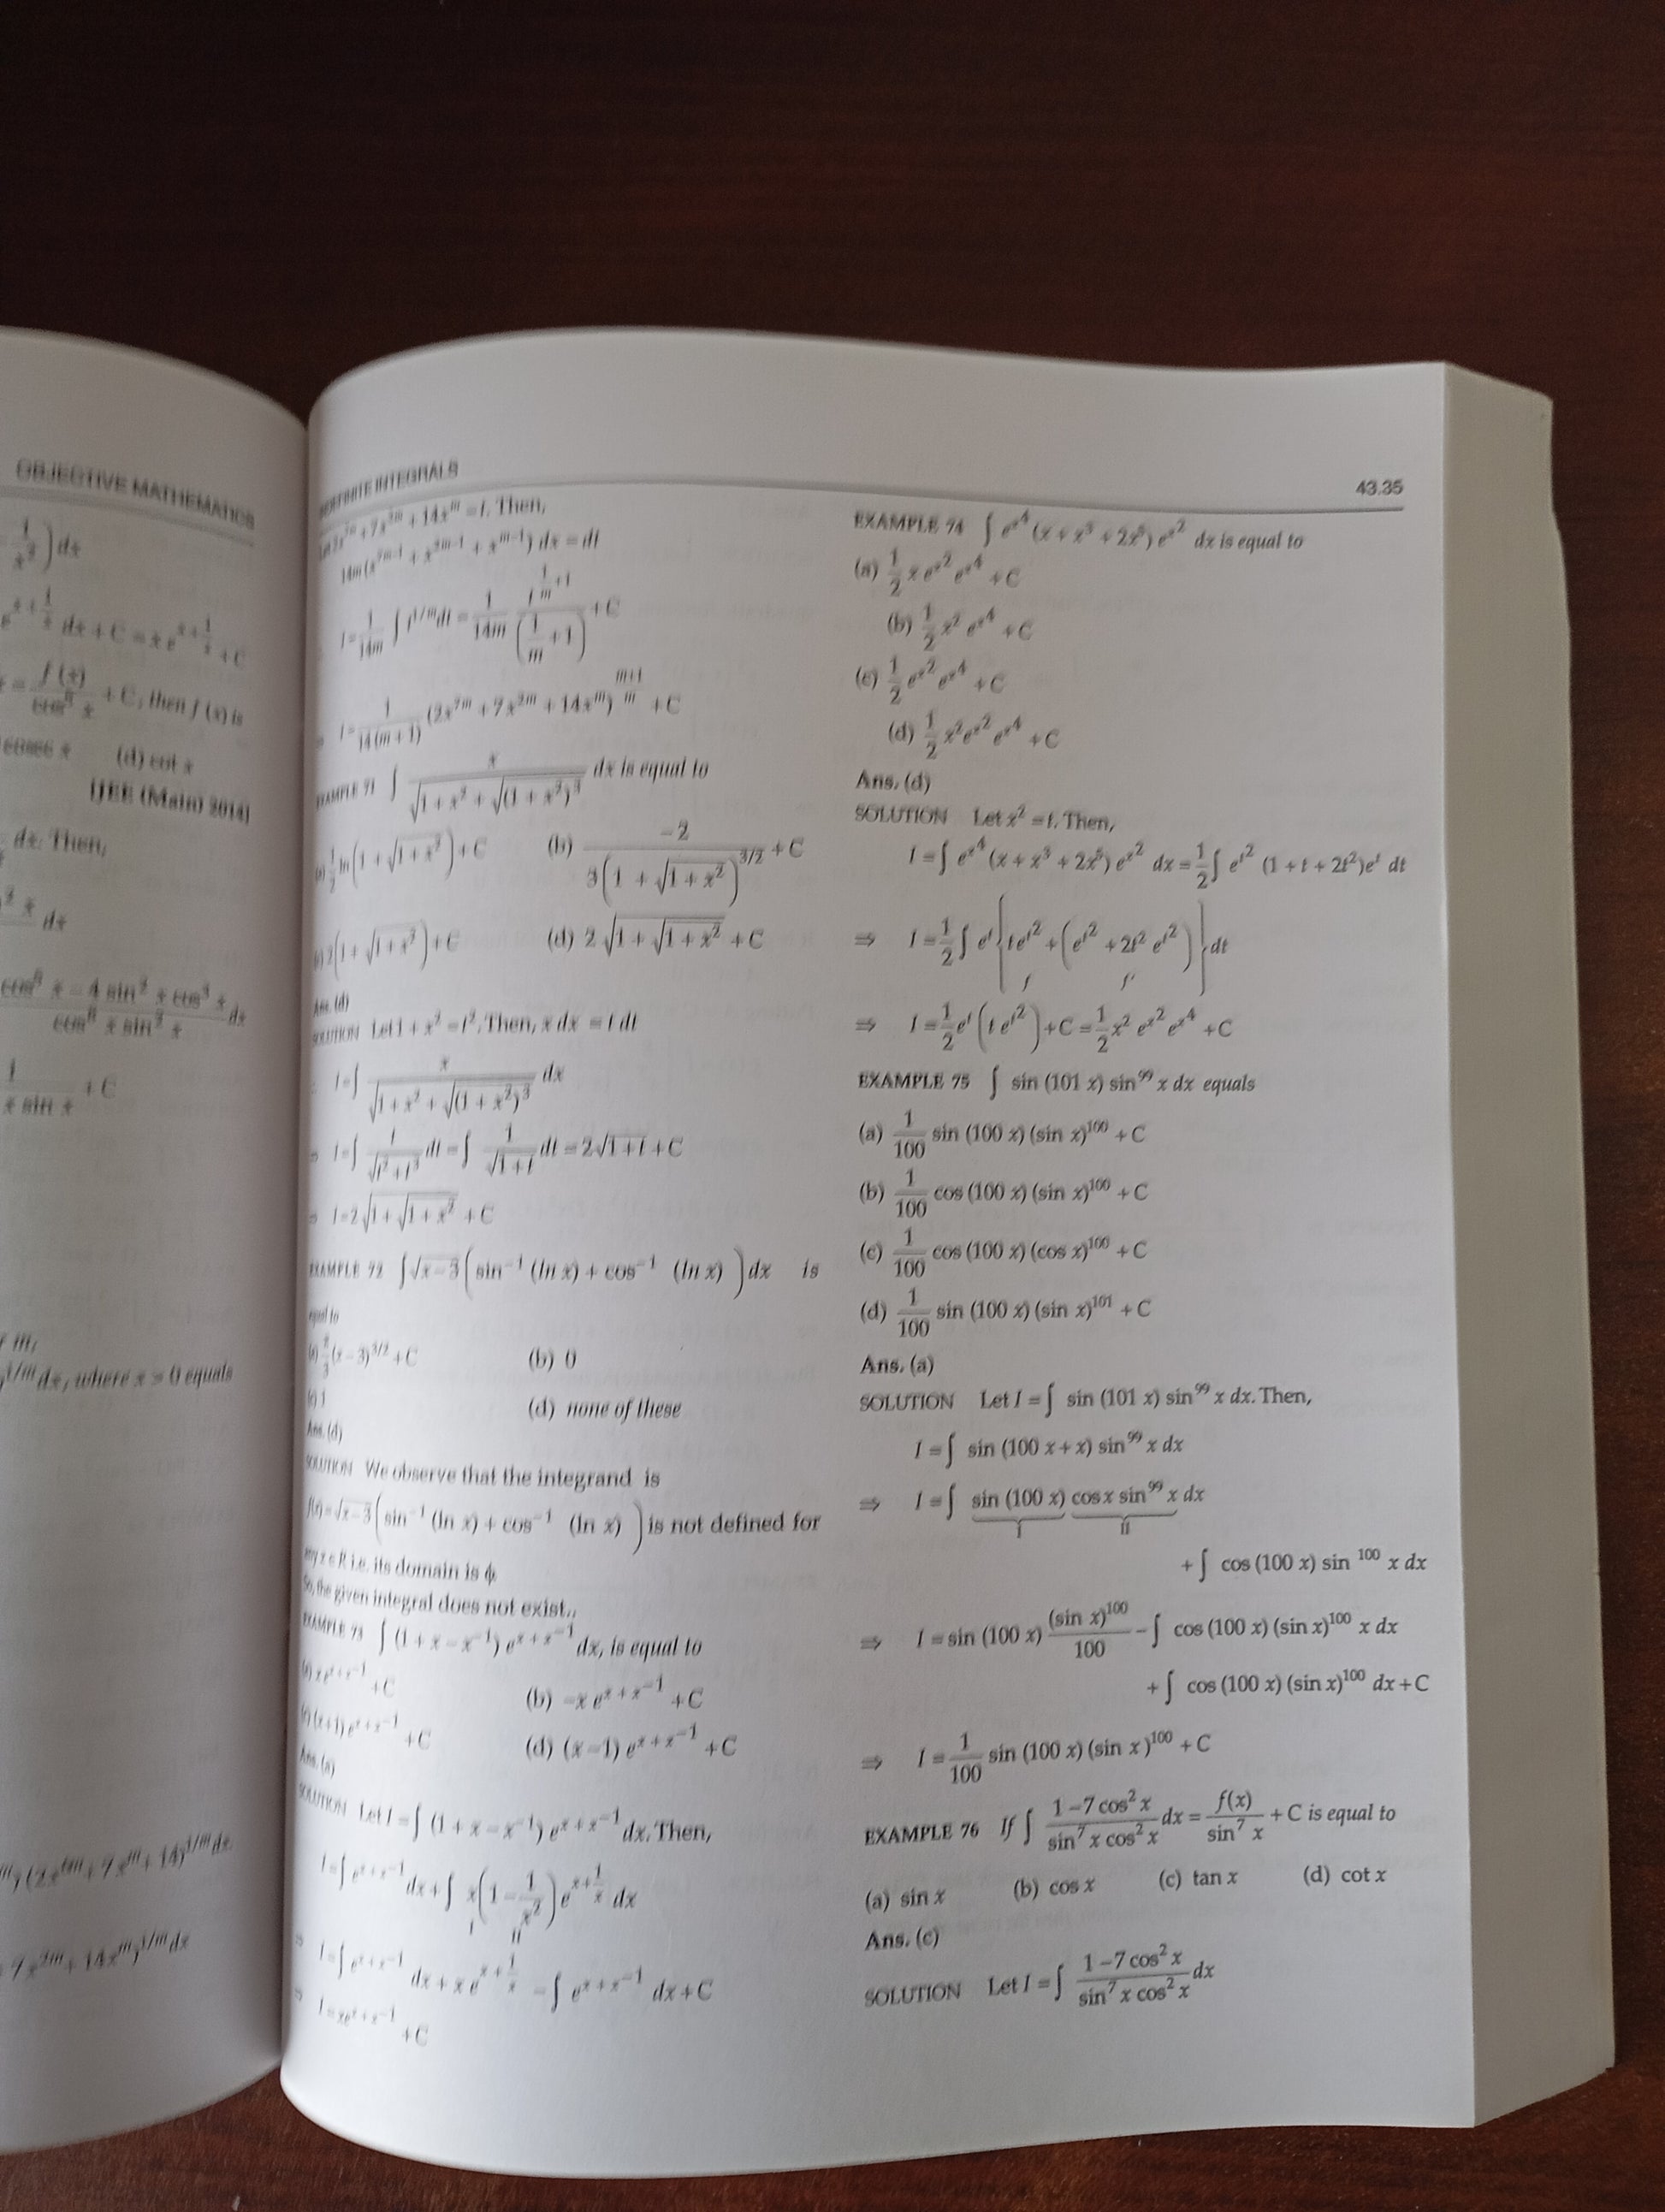 OBJECTIVE MATHEMATICS
1/x²) dx
e^(x+1/x) dx + C = x e^(x+1/x) + C
= f(x)/cos⁸ x + C, then f(x) is
cosec x (d) cot x
[JEE (Main) 2014]
dx. Then,
dx
1/(x sin x) + C
m,
)^(1/m) dx, where x > 0 equals
INDEFINITE INTEGRALS
43.35
Let 2x^(7m) + 7x^(2m) + 14x^m = t. Then,
14m (x^(7m−1) + x^(2m−1) + x^(m−1)) dx = dt
I = 1/14m ∫ t^(1/m) dt = 1/14m · t^(1/m+1)/(1/m + 1) + C
⇒ I = 1/14(m+1) (2x^(7m) + 7x^(2m) + 14x^m)^((m+1)/m) + C
EXAMPLE 71 ∫ x/√(1 + x² + √((1 + x²)³)) dx is equal to
(a) 1/2 ln (1 + √(1 + x²)) + C (b) −2/(3(1 + √(1 + x²))^(3/2)) + C
(c) 2(1 + √(1 + x²)) + C (d) 2√(1 + √(1 + x²)) + C
Ans. (d)
SOLUTION Let 1 + x² = t². Then, x dx = t dt
∴ I = ∫ x/√(1 + x² + √((1 + x²)³)) dx
⇒ I = ∫ t/√(t² + t³) dt = ∫ 1/√(1 + t) dt = 2√(1 + t) + C
⇒ I = 2√(1 + √(1 + x²)) + C
EXAMPLE 72 ∫ √(x − 3) (sin⁻¹ (ln x) + cos⁻¹ (ln x)) dx is
equal to
(a) 2/3 (x − 3)^(3/2) + C (b) 0
(c) 1 (d) none of these
Ans. (d)
SOLUTION We observe that the integrand is
f(x) = √(x − 3) (sin⁻¹ (ln x) + cos⁻¹ (ln x)) is not defined for
any x ∈ R i.e. its domain is ϕ
So, the given integral does not exist..
EXAMPLE 73 ∫ (1 + x − x⁻¹) e^(x + x⁻¹) dx, is equal to
(a) x e^(x + x⁻¹) + C (b) −x e^(x + x⁻¹) + C
(c) (x+1) e^(x + x⁻¹) + C (d) (x−1) e^(x + x⁻¹) + C
Ans. (a)
SOLUTION Let I = ∫ (1 + x − x⁻¹) e^(x + x⁻¹) dx. Then,
I = ∫ e^(x + x⁻¹) dx + ∫ x (1 − 1/x²) e^(x + 1/x) dx
I II
⇒ I = ∫ e^(x + x⁻¹) dx + x e^(x + 1/x) − ∫ e^(x + x⁻¹) dx + C
⇒ I = xe^(x + x⁻¹) + C
EXAMPLE 74 ∫ e^(x⁴) (x + x³ + 2x⁵) e^(x²) dx is equal to
(a) 1/2 x e^(x²) e^(x⁴) + C
(b) 1/2 x² e^(x⁴) + C
(c) 1/2 e^(x²) e^(x⁴) + C
(d) 1/2 x² e^(x²) e^(x⁴) + C
Ans. (d)
SOLUTION Let x² = t. Then,
I = ∫ e^(x⁴) (x + x³ + 2x⁵) e^(x²) dx = 1/2 ∫ e^(t²) (1 + t + 2t²)e^t dt
⇒ I = 1/2 ∫ e^t {te^(t²) + (e^(t²) + 2t² e^(t²))} dt
f f′
⇒ I = 1/2 e^t (t e^(t²)) + C = 1/2 x² e^(x²) e^(x⁴) + C
EXAMPLE 75 ∫ sin (101 x) sin⁹⁹ x dx equals
(a) 1/100 sin (100 x) (sin x)¹⁰⁰ + C
(b) 1/100 cos (100 x) (sin x)¹⁰⁰ + C
(c) 1/100 cos (100 x) (cos x)¹⁰⁰ + C
(d) 1/100 sin (100 x) (sin x)¹⁰¹ + C
Ans. (a)
SOLUTION Let I = ∫ sin (101 x) sin⁹⁹ x dx. Then,
I = ∫ sin (100 x + x) sin⁹⁹ x dx
⇒ I = ∫ sin (100 x) cos x sin⁹⁹ x dx
I II
+ ∫ cos (100 x) sin ¹⁰⁰ x dx
⇒ I = sin (100 x) (sin x)¹⁰⁰/100 − ∫ cos (100 x) (sin x)¹⁰⁰ x dx
+ ∫ cos (100 x) (sin x)¹⁰⁰ dx + C
⇒ I = 1/100 sin (100 x) (sin x)¹⁰⁰ + C
EXAMPLE 76 If ∫ (1 − 7 cos² x)/(sin⁷ x cos² x) dx = f(x)/sin⁷ x + C is equal to
(a) sin x (b) cos x (c) tan x (d) cot x
Ans. (c)
SOLUTION Let I = ∫ (1 − 7 cos² x)/(sin⁷ x cos² x) dx